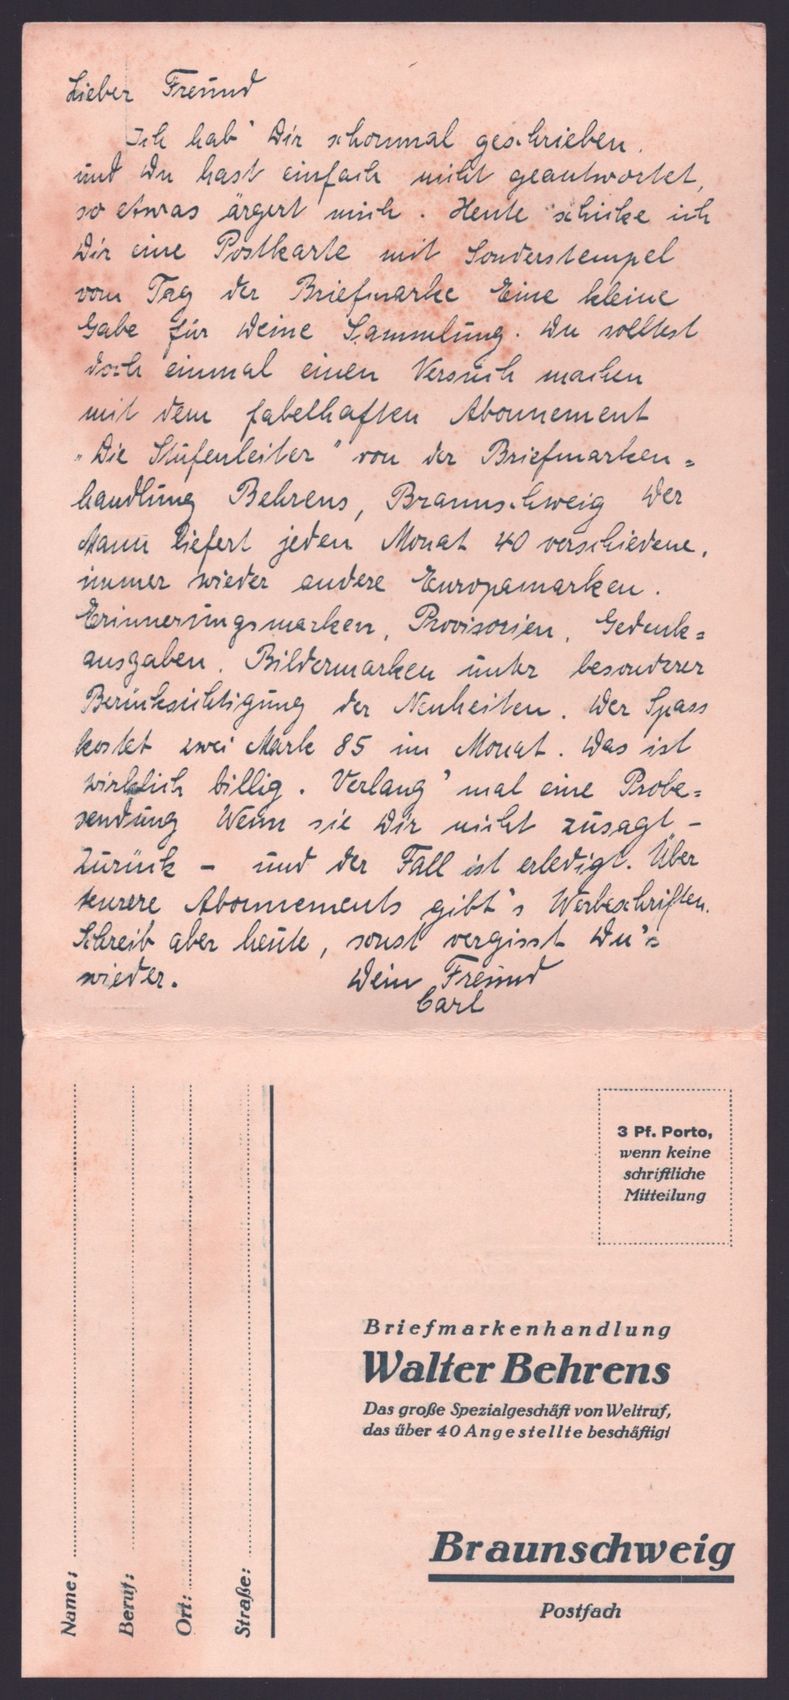 Lieber Freund
Ich hab' Dir schonmal geschrieben,
und Du hast einfach nicht geantwortet,
so etwas ärgert mich. Heute schicke ich
Dir eine Postkarte mit Sonderstempel
vom Tag der Briefmarke Eine kleine
Gabe für Deine Sammlung. Du solltest
doch einmal einen Versuch machen
mit dem fabelhaften Abonnement
„Die Stufenleiter" von der Briefmarken=
handlung Behrens, Braunschweig Der
Mann liefert jeden Monat 40 verschiedene,
immer wieder andere Europamarken.
Erinnerungsmarken, Provisorien, Gedenk=
ausgaben, Bildermarken unter besonderer
Berücksichtigung der Neuheiten. Der Spass
kostet zwei Mark 85 im Monat. Das ist
wirklich billig. Verlang' mal eine Probe=
sendung Wenn sie Dir nicht zusagt –
zurück – und der Fall ist erledigt. Über
teurere Abonnements gibt's Werbeschriften.
Schreib aber heute, sonst vergisst Du's
wieder. Dein Freund
Carl
3 Pf. Porto,
wenn keine
schriftliche
Mitteilung
Briefmarkenhandlung
Walter Behrens
Das große Spezialgeschäft von Weltruf,
das über 40 Angestellte beschäftigt
Braunschweig
Postfach
Name:
Beruf:
Ort:
Straße: